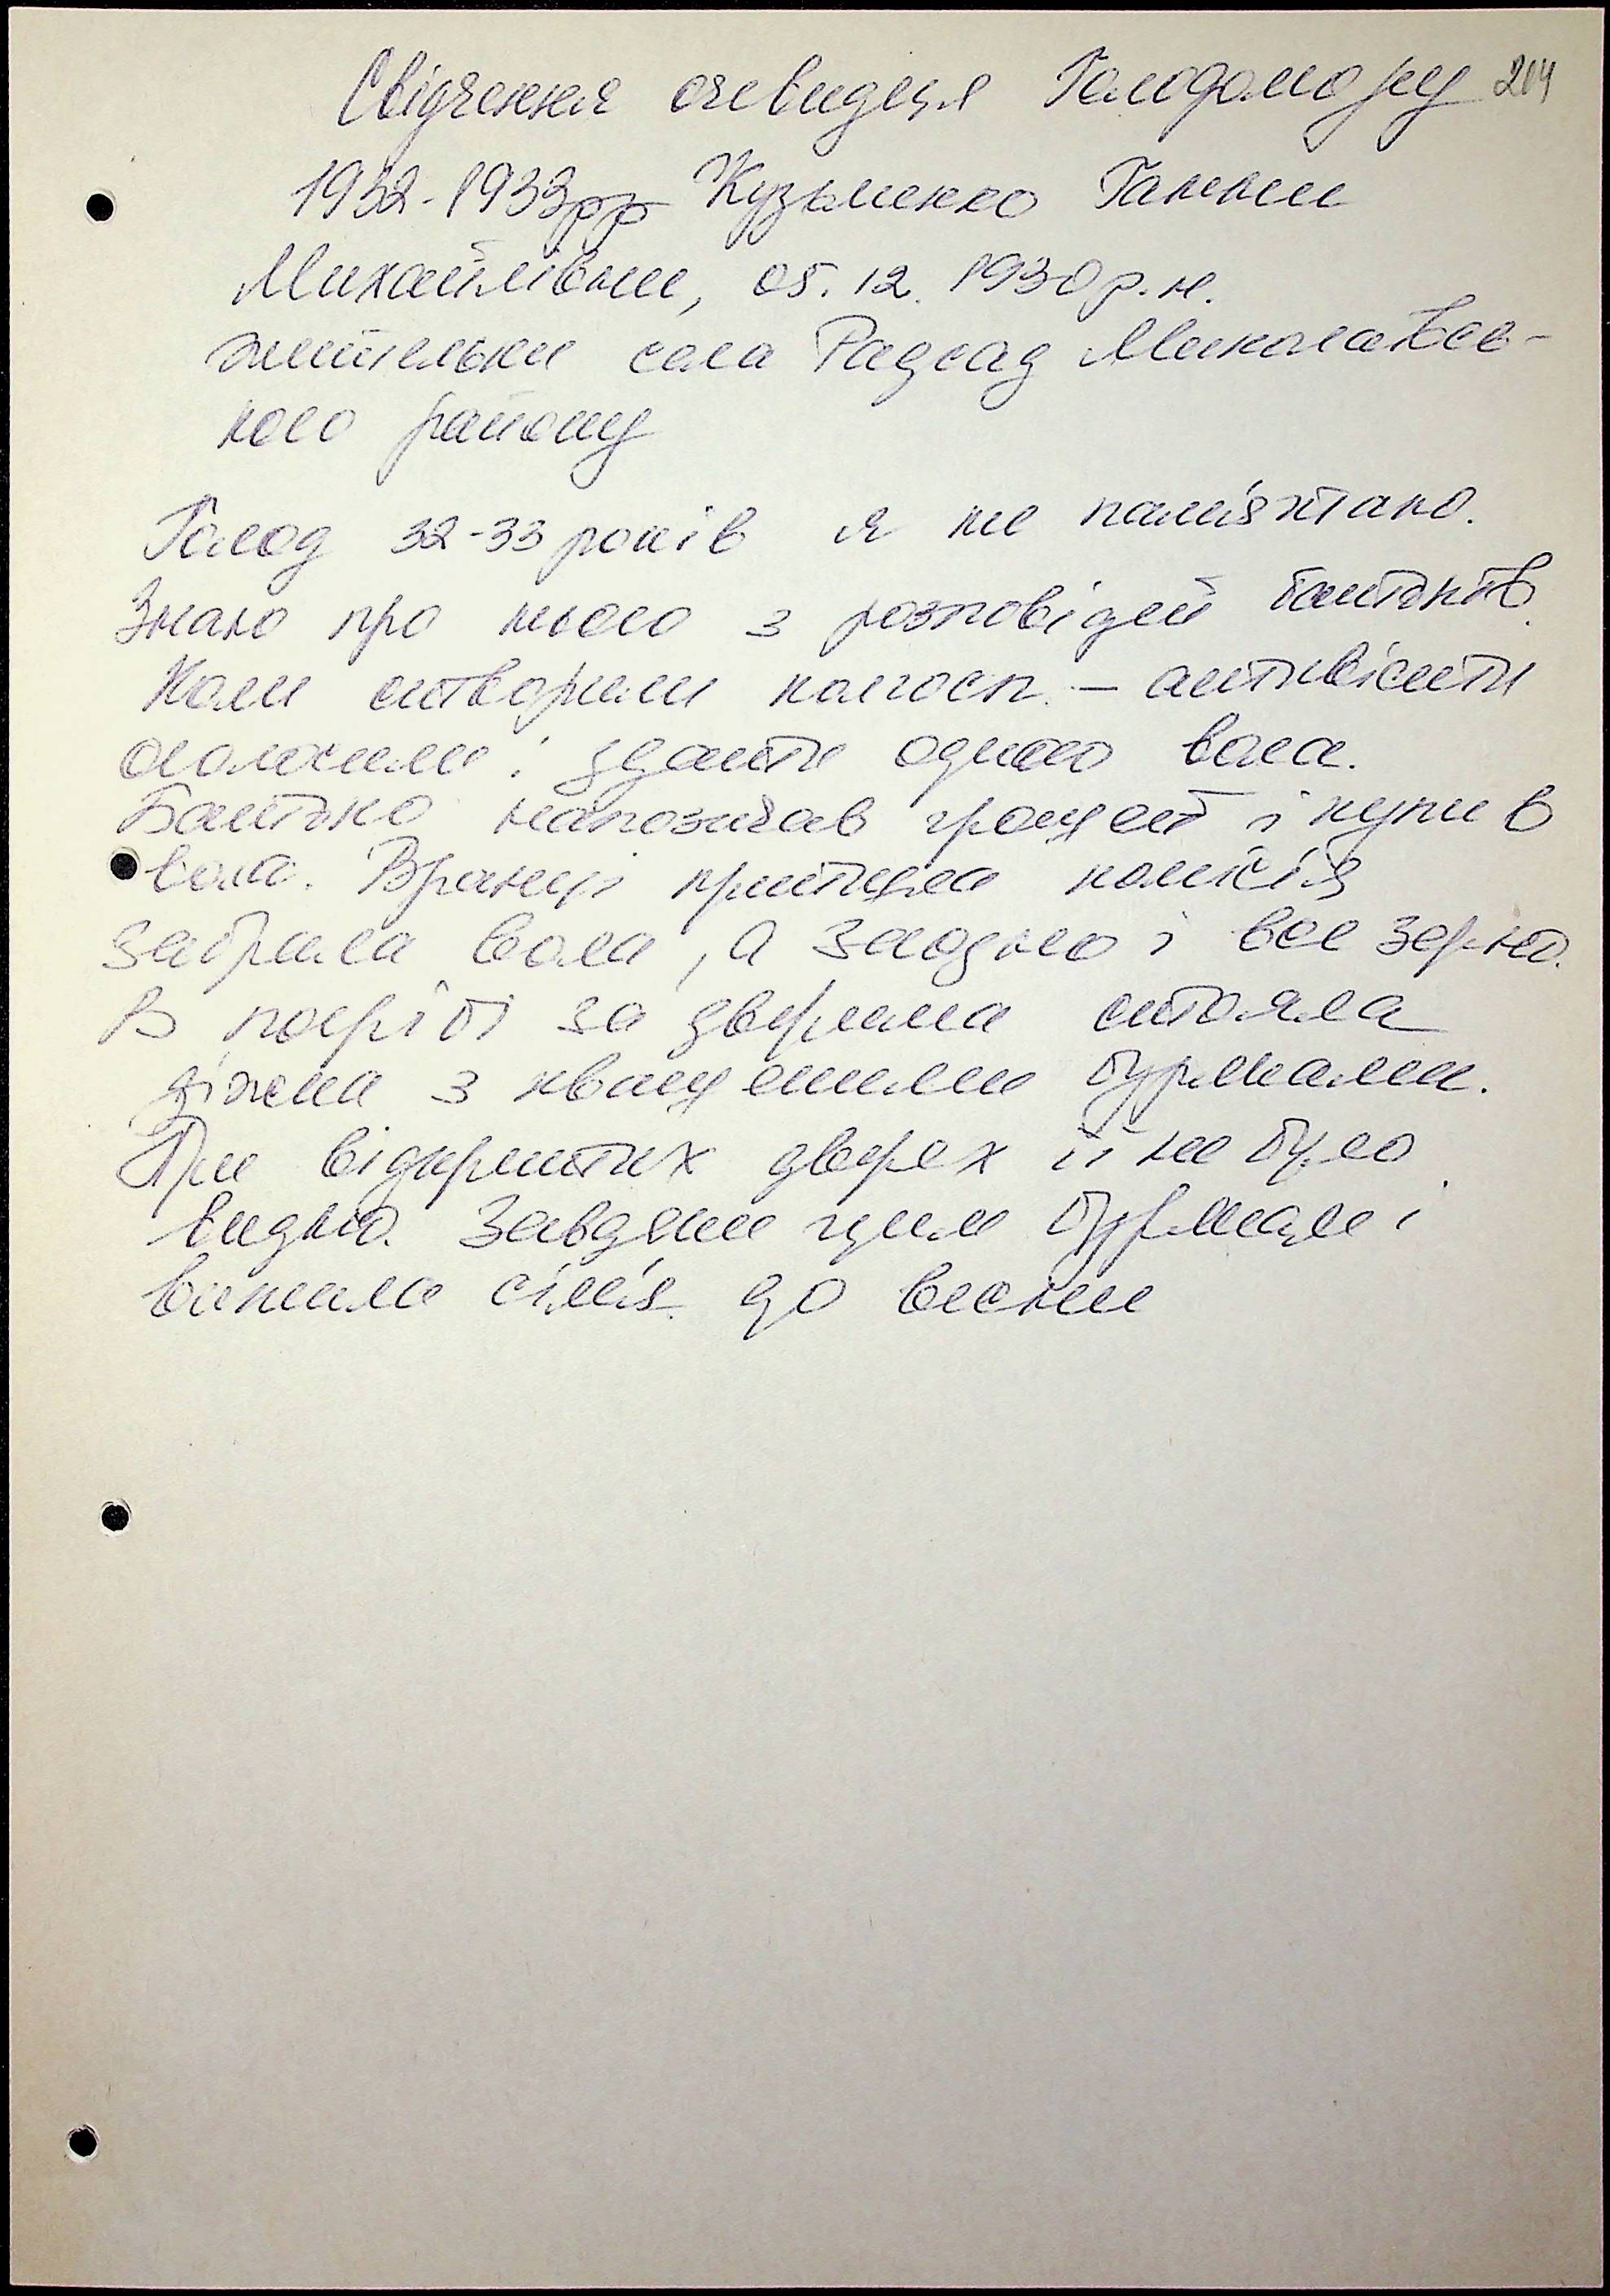 Свідчення очевидця Голодомору 204
1932-1933рр Кузьменко Ганни
Михайлівни, 05.12.1930р.н.
жительки села Радсад Миколаївсь-
кого району
Голод 32-33 років я не пам'ятаю.
Знаю про нього з розповідей батьків.
Коли створили колгосп - активісти
оголосили: здати одного вола.
Батько напозичав грошей і купив
вола. Вранці прийшла комісія
забрала вола, а заодно і все зерно.
В погрібі за дверима стояла
діжка з квашеними буряками.
При відкритих дверях її не було
видно. Завдяки цим бурякам і
вижила сім'я до весни